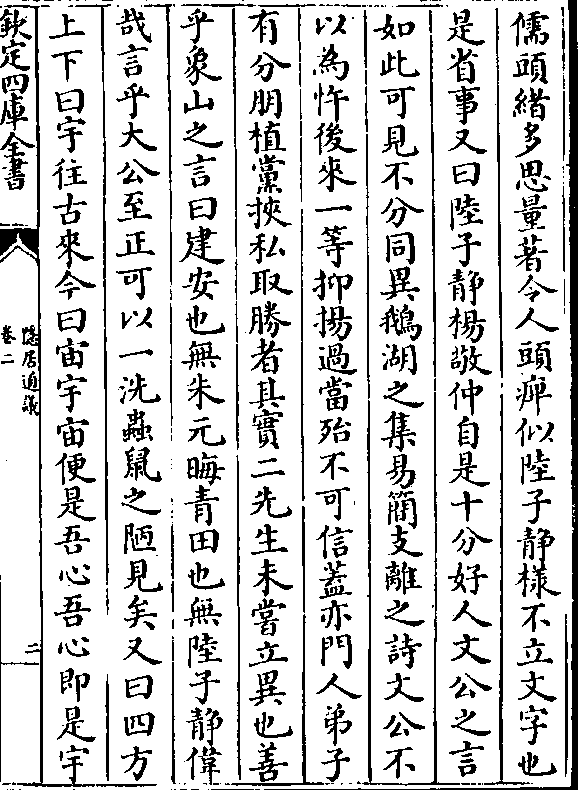 儒頭緒多思量著令人頭痺似陸子静様不立文字也
是省事又曰陸子静楊敬仲自是十分好人文公之言
如此可見不分同異鵝湖之集易簡支離之詩文公不
以為忤後來一等抑揚過當殆不可信蓋亦門人弟子
有分朋植黨挾私取勝者其實二先生未嘗立異也善
乎象山之言曰建安也無朱元晦青田也無陸子静偉
哉言乎大公至正可以一洗蟲䑕之陋見矣又曰四方
上下曰宇往古來今曰宙宇宙便是吾心吾心即是宇
欽定四庫全書
隠居通議
卷二
二